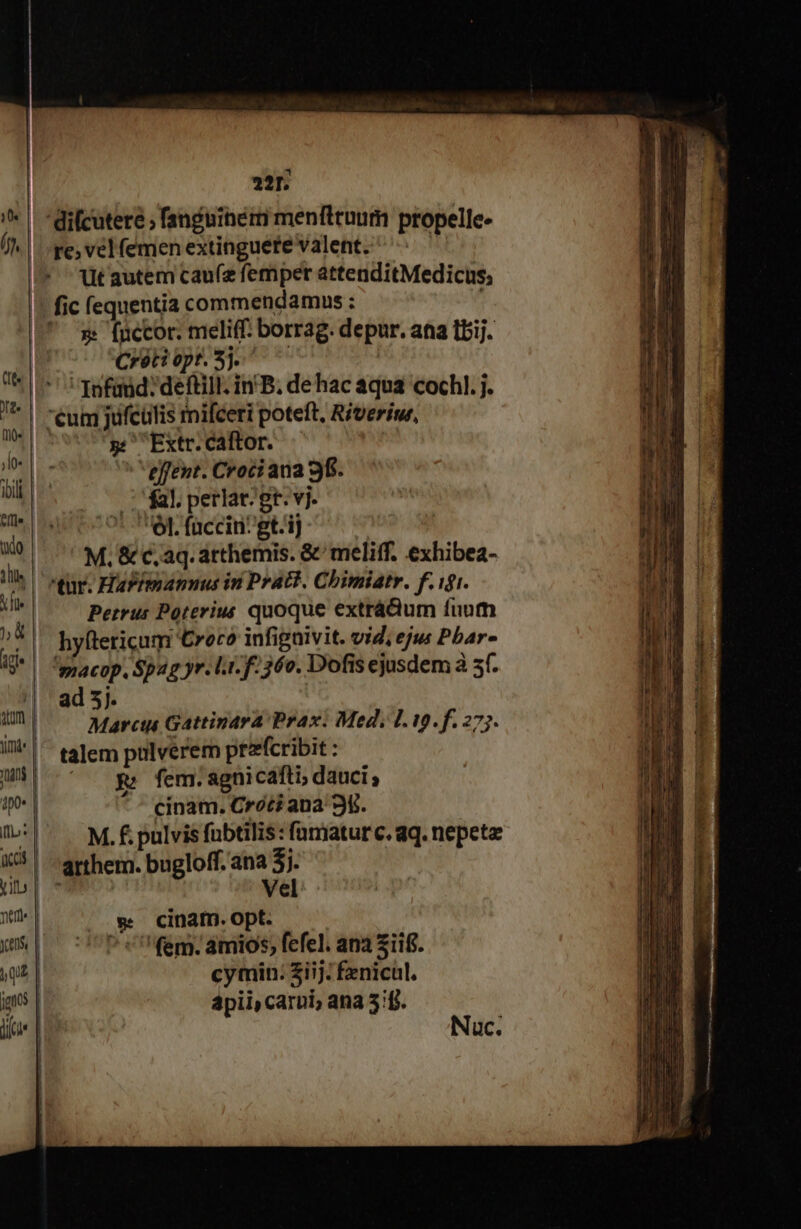 221.
diſcutere, ſanguinem menſtruum propelle-
re, vel ſemen extinguere valent.
Ut autem cauſæ ſemper attenditMedicus,
ſic ſequentia commendamus:
℞ ſuccor. meliſſ. borrag. depur. ana ℔ij.
Croci opt. ʒj.
Infund. deſtill. in B. de hac aqua cochl. j.
cum juſculis miſceri poteſt, Riverius,
℞ Extr. caſtor.
eſſent. Croci ana ℈ß.
ſal. perlar. gr. vj.
ol. ſuccin. gt. ij
M. & c. aq. arthemis. & meliſſ. exhibea-
tur. Hartmannus in Pract. Chimiatr. f. 181.
Petrus Poterius quoque extractum ſuum
hyſtericum Croco inſignivit. vid. ejus Phar-
macop. Spagyr. l. 1. f. 360. Doſis ejusdem à ʒſ.
ad ʒj.
Marcus Gattinara Prax. Med. l. 19. f. 273.
talem pulverem præſcribit:
℞ ſem. agni caſti, dauci,
cinam. Croci ana ℈ß.
M. f. pulvis ſubtilis: ſumatur c. aq. nepetæ
arthem. bugloſſ. ana ℥j.
Vel
℞ cinam. opt.
ſem. amios, ſeſel. ana ʒiiß.
cymin. ʒiij. fænicul.
apii, carui, ana ʒß.
Nuc.